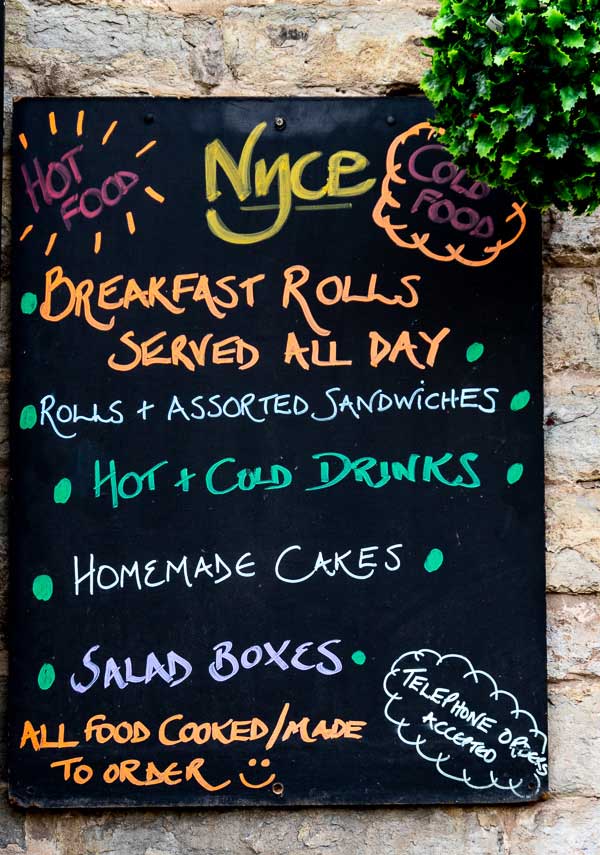 HOT
FOOD
Nyce
COLD
FOOD
BREAKFAST ROLLS
SERVED ALL DAY
ROLLS + ASSORTED SANDWICHES
HOT + COLD DRINKS
HOMEMADE CAKES
SALAD BOXES
ALL FOOD COOKED/MADE
TO ORDER
TELEPHONE ORDERS
ACCEPTED